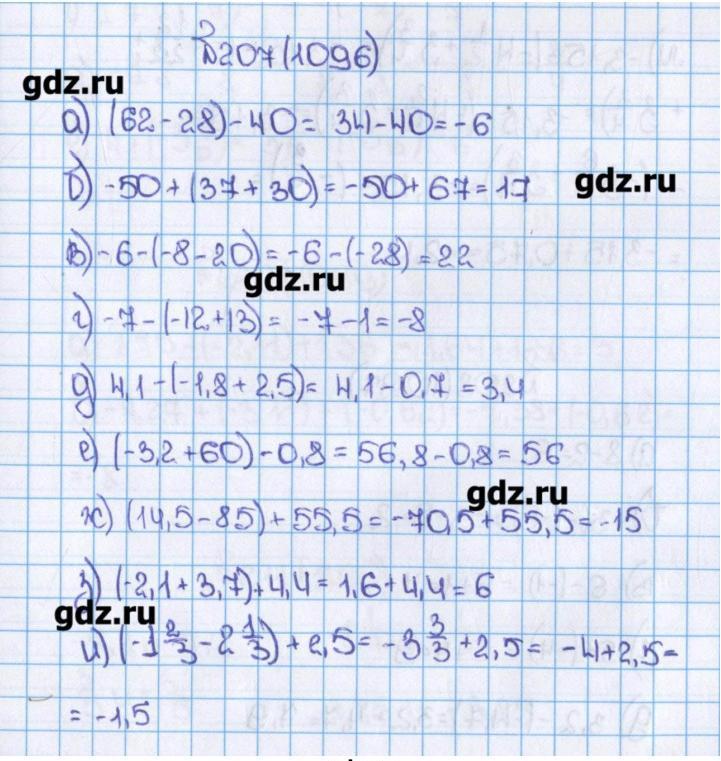 №207(1096)
gdz.ru
а) (62-28)-40= 34-40=-6
б) -50+(37+30)=-50+67=17
gdz.ru
в) -6-(-8-20)=-6-(-28)=22
gdz.ru
г) -7-(-12+13)= -7-1=-8
д) 4,1-(-1,8+2,5)= 4,1-0,7=3,4
е) (-3,2+60)-0,8=56,8-0,8=56
gdz.ru
ж) (14,5-85)+55,5=-70,5+55,5=-15
з) (-2,1+3,7)+4,4=1,6+4,4=6
gdz.ru
и) (-1 2/3 - 2 1/3)+2,5= -3 3/3 +2,5= -4+2,5=
= -1,5